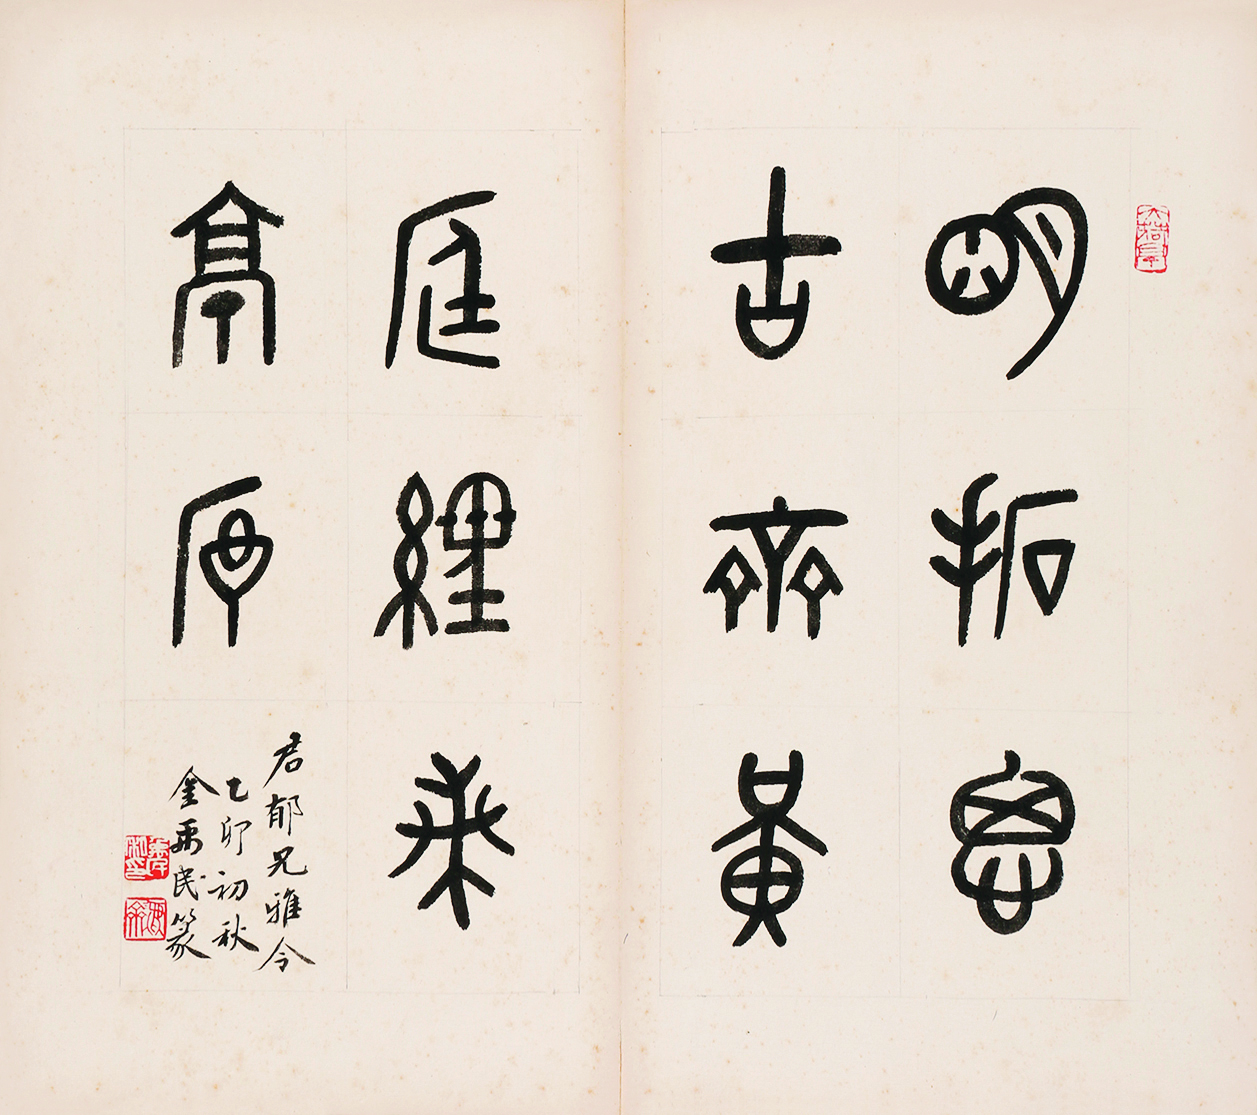 明拓思
古齋黃
庭經來
君郁兄雅令
乙卯初秋
金禹民篆